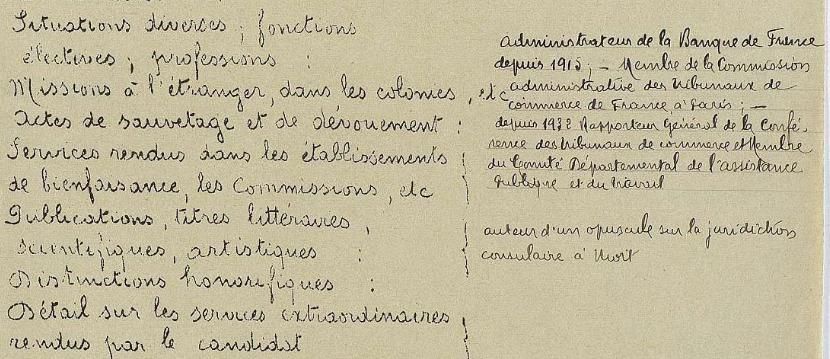 Situations diverses ; fonctions
électives ; professions :
Missions à l'étranger, dans les colonies, etc
Actes de sauvetage et de dévouement :
Services rendus dans les établissements
de bienfaisance, les Commissions, etc
Publications, titres littéraires,
scientifiques, artistiques :
Distinctions honorifiques :
Détail sur les services extraordinaires
rendus par le candidat
administrateur de la Banque de France
depuis 1915 ; - Membre de la Commission
administrative des tribunaux de
commerce de France à Paris ; -
depuis 1932 Rapporteur Général de la Confé
rence des tribunaux de commerce et Membre
du Comité Départemental de l'assistance
Publique et du travail
auteur d'un opuscule sur la juridiction
consulaire à Niort